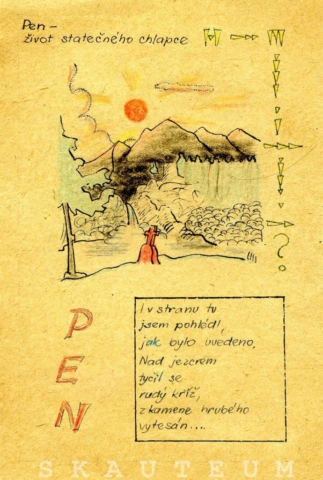 Pen –
život statečného chlapce
PEN
I v stranu tu
jsem pohlédl,
jak bylo uvedeno,
Nad jezerem
tyčil se
rudý kříž,
z kamene hrubého
vytesán....
SKAUTEUM